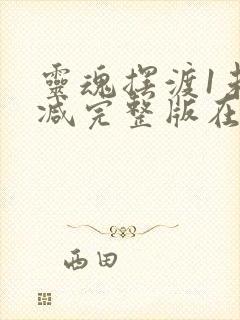 靈魂摆渡1未
减完整版在
西田